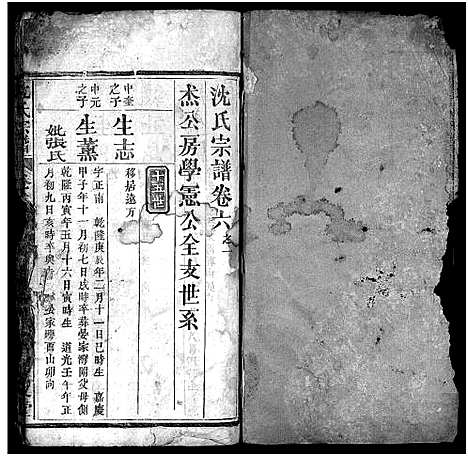 沈氏宗譜卷六之一
杰公房學憲公全支世系
十五世
中奎之子
生志
移居遠方
中元之子
生蕙
字正南 乾隆庚辰年二月十一日巳時生 嘉慶
甲子年十一月初七日戌時卒葬晏家灣附父母側
妣張氏
乾隆丙寅年五月十六日寅時生 道光壬午年正
月初九日亥時卒與 晏家灣酉山卯向
氏宗譜